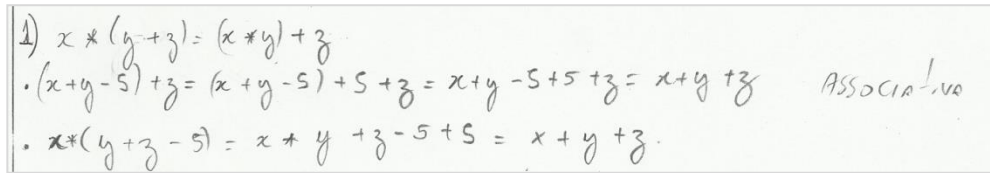 1) x * (y + z) = (x * y) + z
. (x+y-5) + z = (x + y - 5) + 5 + z = x+y -5+5 +z = x+y +z ASSOCIATIVA
. x*(y+z-5) = x * y +z-5+5 = x + y + z.